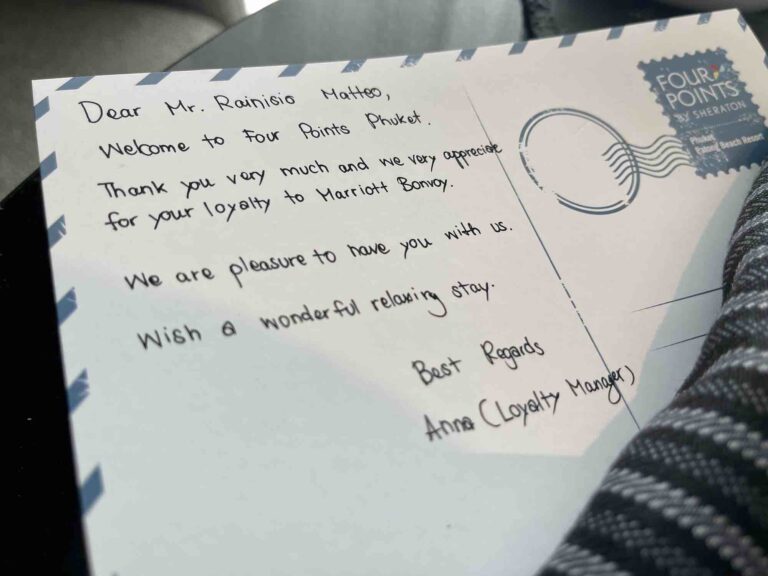 Dear Mr. Rainisio Matteo,
Welcome to Four Points Phuket.
Thank you very much and we very appreciate
for your loyalty to Marriott Bonvoy.
We are pleasure to have you with us.
Wish a wonderful relaxing stay.
Best Regards
Anna (Loyalty Manager)
FOUR
POINTS
BY SHERATON
Phuket
Patong Beach Resort